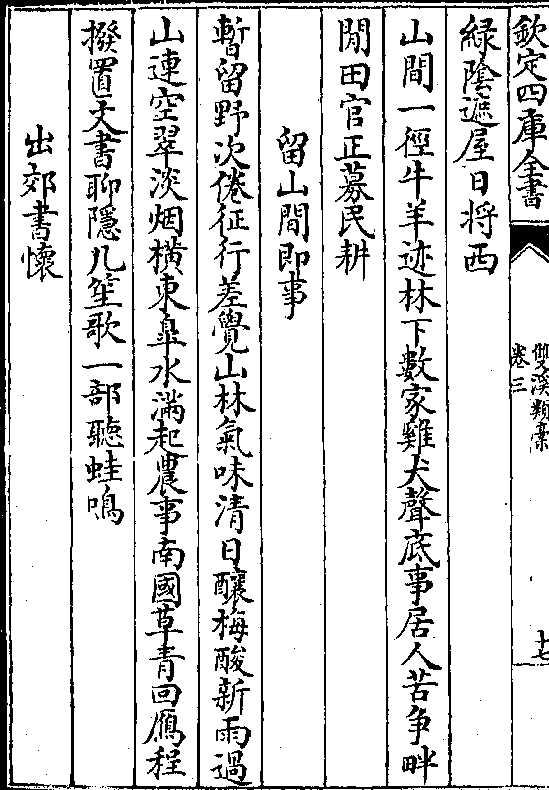 欽定四庫全書
雙溪類藁
卷三
十七
緑隂遮屋日将西
山間一徑牛羊迹林下數家雞犬聲底事居人苦争畔
閒田官正募民耕
留山間即事
暫留野次倦征行差覺山林氣味清日釀梅酸新雨過
山連空翠淡烟横東臯水滿起農事南國草青回鴈程
撥置文書聊隠几笙歌一部聽蛙鳴
出郊書懷